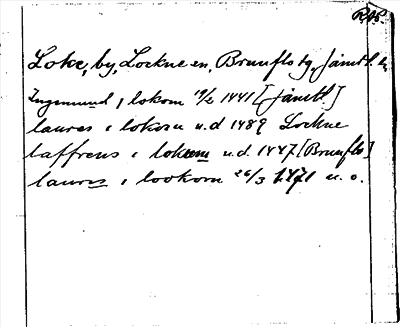 Loke, by, Lockne sn, Brunflo tg, Jämtl. l.
Ingemund i lokom 19/2 1441 [Jämtl.]
laures i lokom u.d 1489 Lockne
laffrens i lokom u.d. 1447 [Brunflo]
laures i lookom 26/3 1471 u. o.